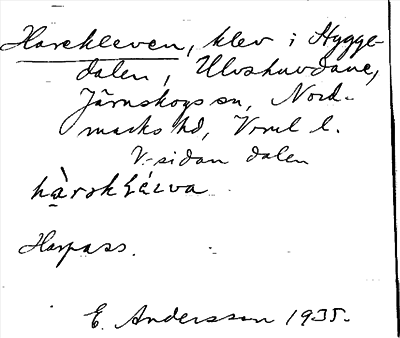 Harekleven, klev i Hygge-
dalen, Ulvshuvdane,
Järnskogs sn, Nord-
marks hd, Vrml l.
V-sidan dalen
Harpass.
E. Andersson 1935.